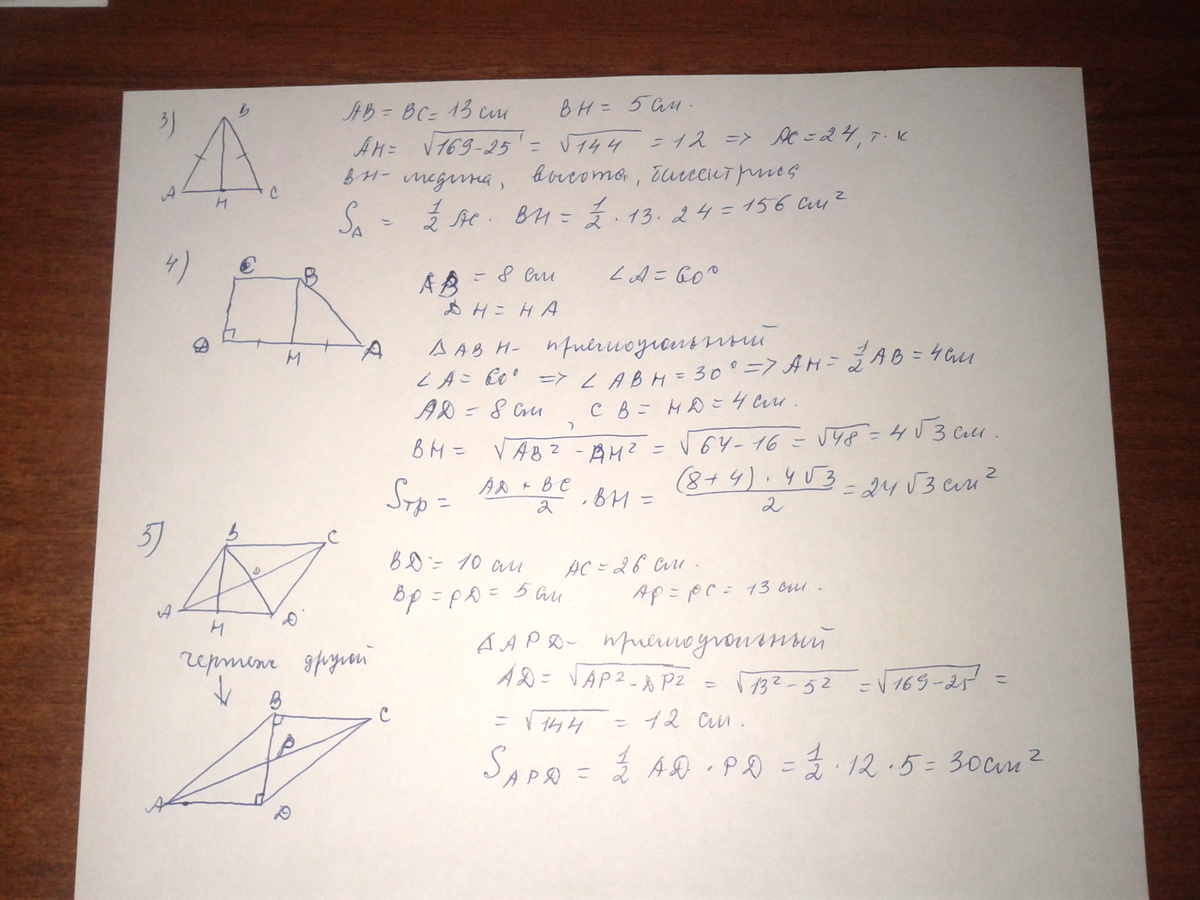 3)
B
A
H
C
AB = BC = 13 см BH = 5 см.
AH = √169-25 = √144 = 12 => AC = 24, т.к
BH - медина, высота, биссектриса
S△ = 1/2 AC · BH = 1/2 · 13 · 24 = 156 см²
4)
C
B
D
H
A
AB = 8 см ∠A = 60°
DH = HA
△ABH - прямоугольный
∠A = 60° => ∠ABH = 30° => AH = 1/2 AB = 4 см
AD = 8 см, CB = HD = 4 см.
BH = √AB² - AH² = √64-16 = √48 = 4√3 см.
Sтр = (AD + BC)/2 · BH = ((8+4) · 4√3)/2 = 24√3 см²
5)
B
C
A
H
D
BD = 10 см AC = 26 см.
BP = PD = 5 см. AP = PC = 13 см.
чертеж другой
B
C
P
A
D
△APD - прямоугольный
AD = √AP² - DP² = √13² - 5² = √169-25 =
= √144 = 12 см.
S APD = 1/2 AD · PD = 1/2 · 12 · 5 = 30 см²